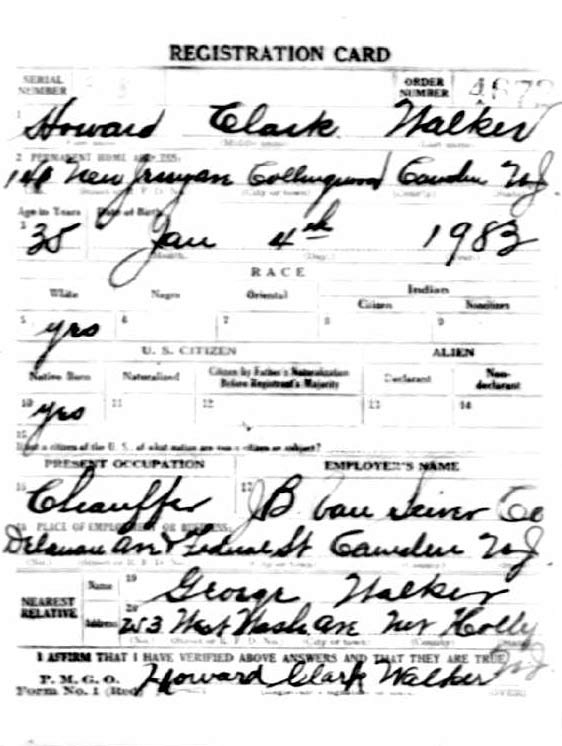 REGISTRATION CARD
SERIAL NUMBER ORDER NUMBER 4673
1 Howard Clark Walker
(Middle name) (Last name)
2 PERMANENT HOME ADDRESS:
New Jersey an Collingswood Camden N.J.
(City or town)
Age in Years Date of Birth
3 35 Jan 4th 1983
(Month) (Day) (Year)
RACE
White Negro Oriental Indian
Citizen Noncitizen
5 yes 6 7 8 9
U. S. CITIZEN ALIEN
Native Born Naturalized Citizen by Father's Naturalization Before Registrant's Majority Declarant Non-declarant
10 yes 11 12 13 14
15
If not a citizen of the U. S., of what nation are you a citizen or subject?
PRESENT OCCUPATION EMPLOYER'S NAME
16 Chauffer 17 J B Van Sciver Co
18 PLACE OF EMPLOYMENT OR BUSINESS:
Delaware Ave & Federal St Camden N.J.
NEAREST RELATIVE Name 19 George Walker
Address 20 253 West Wash Ave Mt Holly
(No.) (Street or R. F. D. No.) (City or town) (County)
N.J.
I AFFIRM THAT I HAVE VERIFIED ABOVE ANSWERS AND THAT THEY ARE TRUE
P. M. G. O.
Form No. 1 (Red) Howard Clark Walker
(OVER)